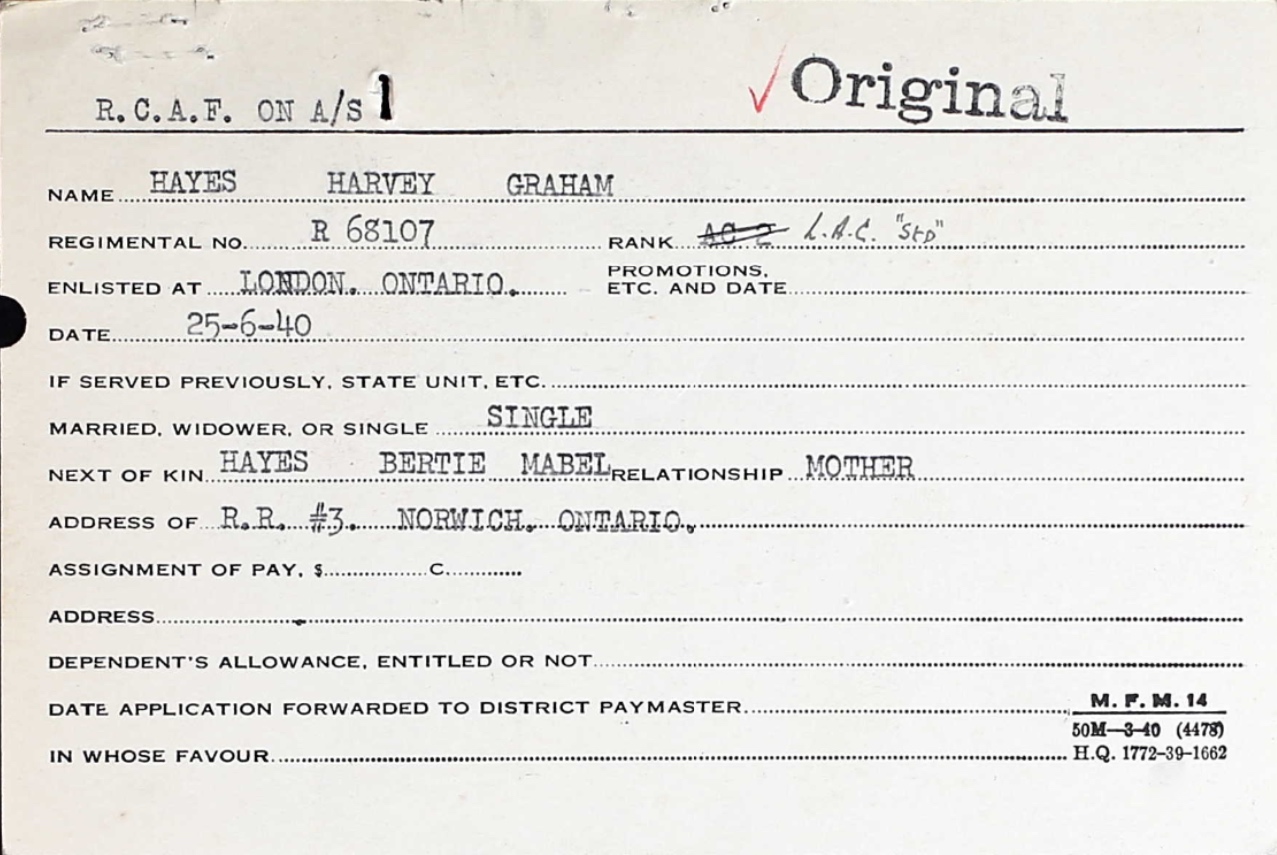 R.C.A.F. ON A/S 1 Original
NAME HAYES HARVEY GRAHAM
REGIMENTAL NO. R 68107 RANK AC 2 L.A.C. "Std"
ENLISTED AT LONDON. ONTARIO. PROMOTIONS, ETC. AND DATE
DATE 25-6-40
IF SERVED PREVIOUSLY, STATE UNIT, ETC.
MARRIED, WIDOWER, OR SINGLE SINGLE
NEXT OF KIN HAYES BERTIE MABEL RELATIONSHIP MOTHER
ADDRESS OF R.R. #3. NORWICH. ONTARIO.
ASSIGNMENT OF PAY, $ C.
ADDRESS
DEPENDENT'S ALLOWANCE, ENTITLED OR NOT
DATE APPLICATION FORWARDED TO DISTRICT PAYMASTER
M. F. M. 14
50M—3-40 (4478)
IN WHOSE FAVOUR H.Q. 1772-39-1662